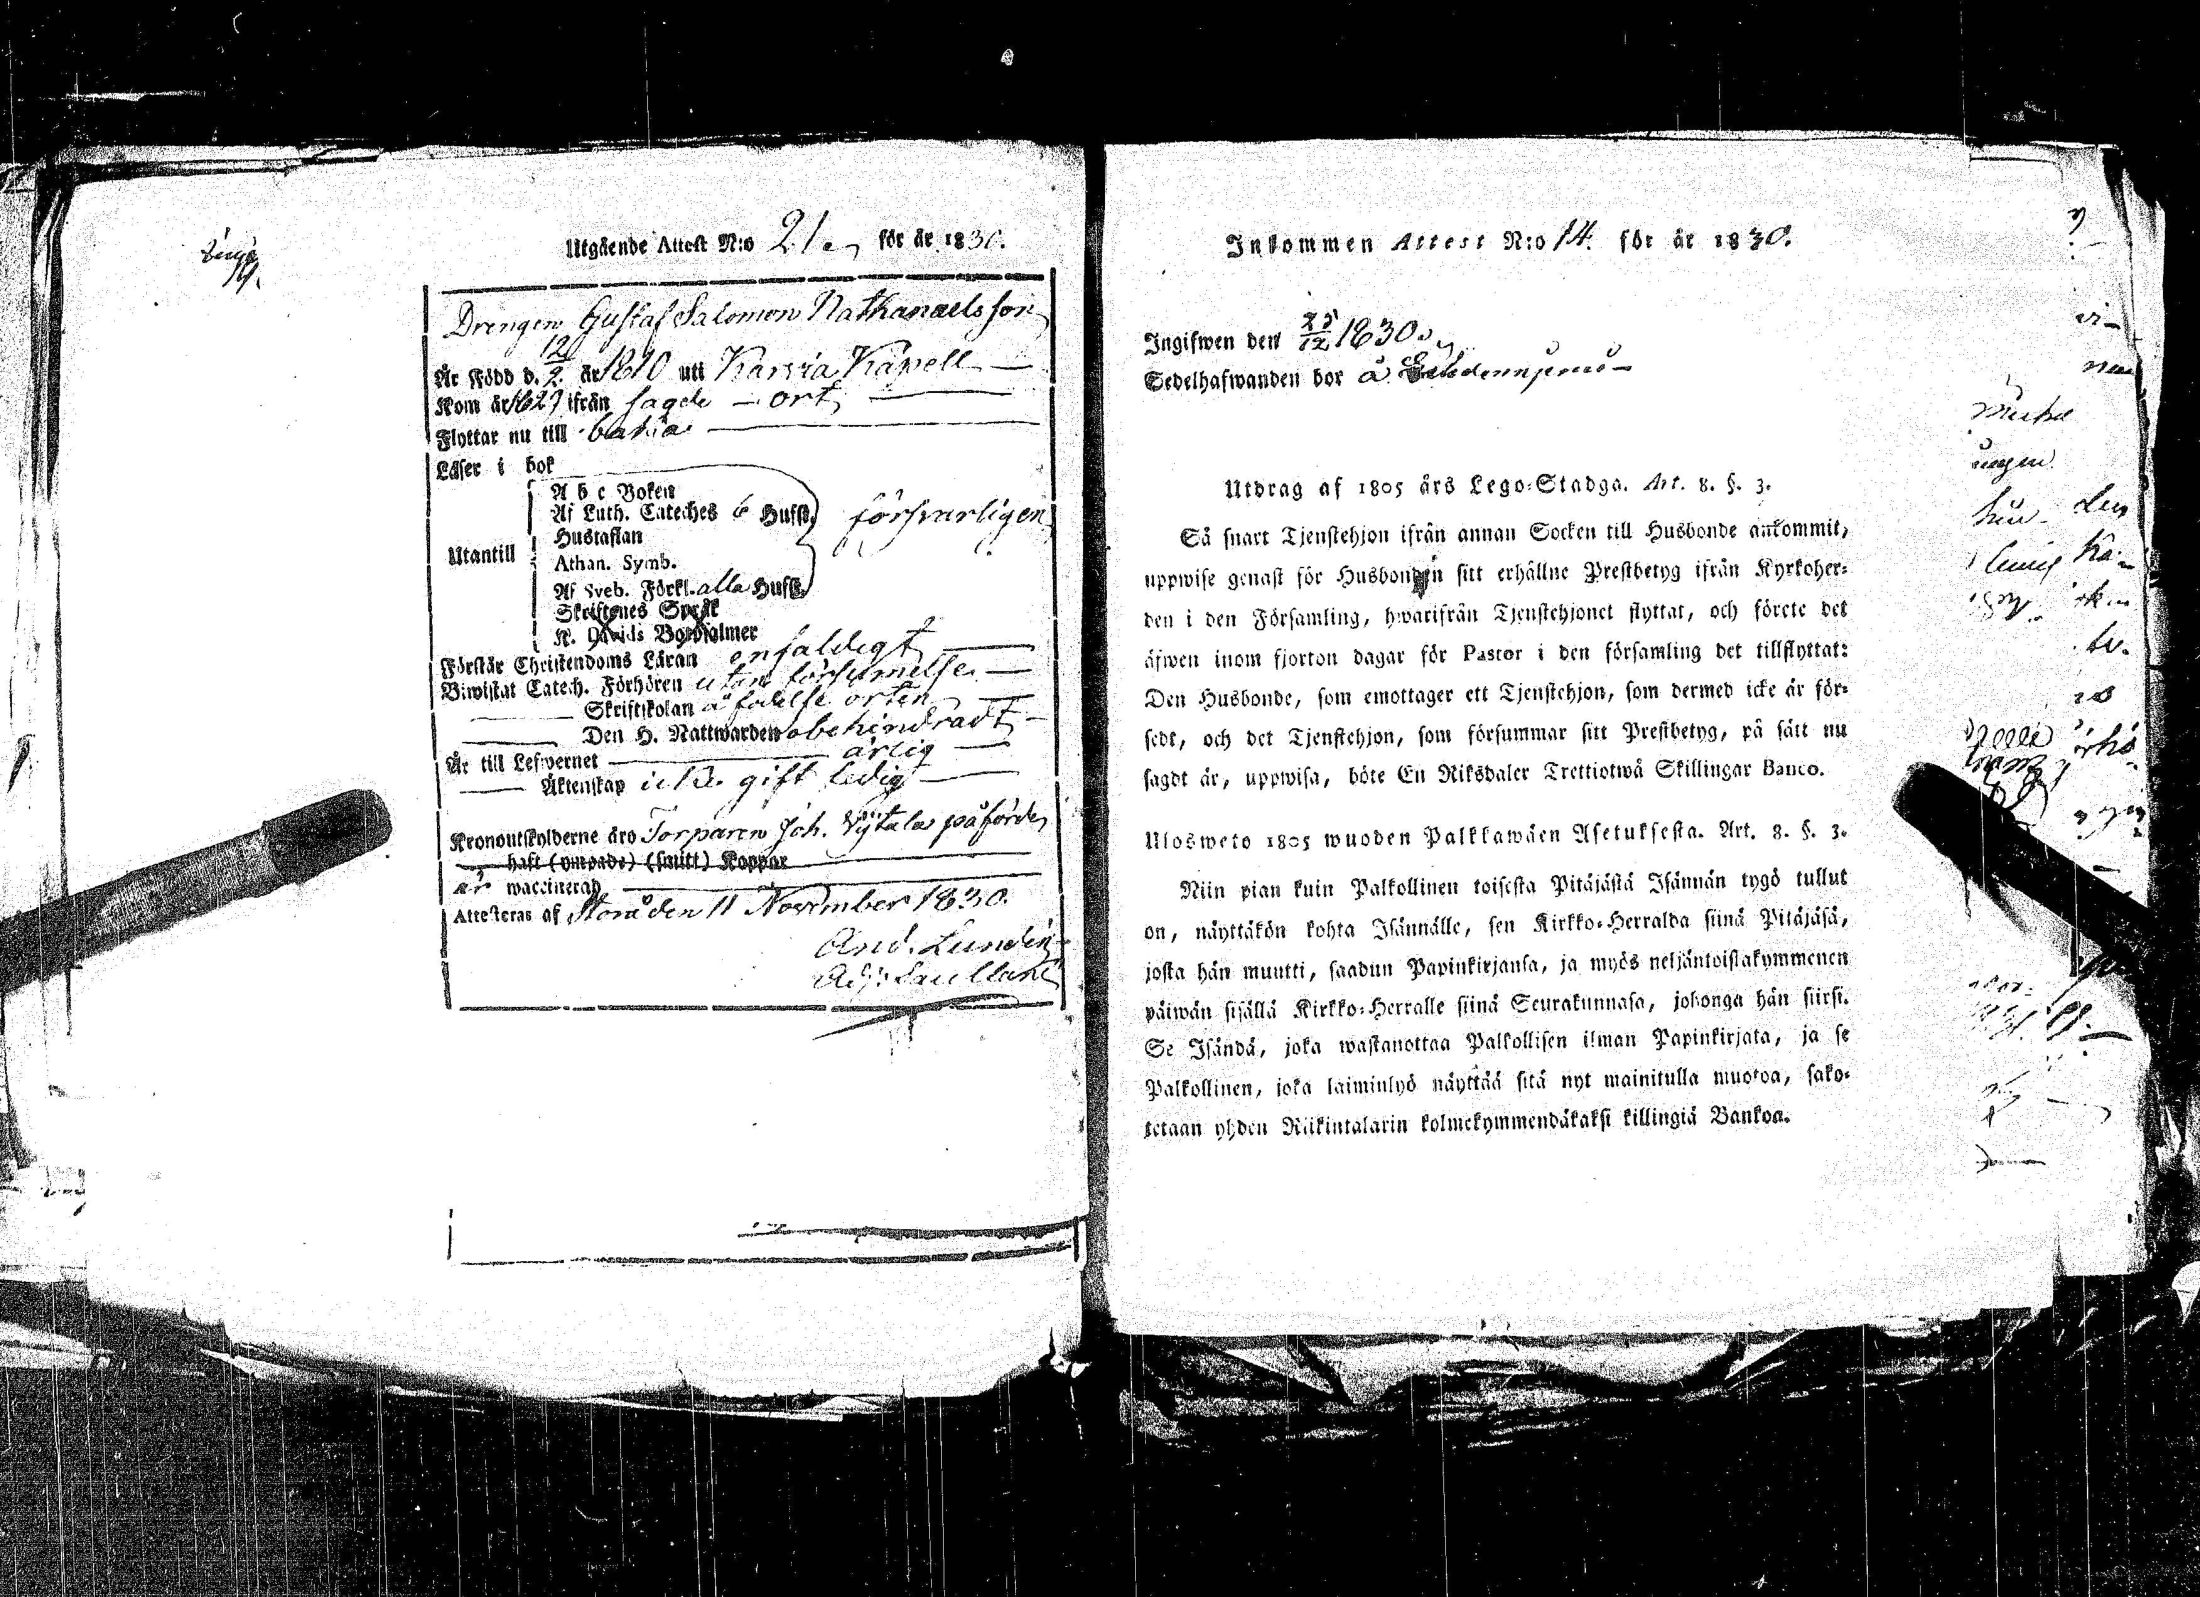 Utgående Attest N:o 21. för år 1830.
Drengen Gustaf Salomon Nathanaelsson
Är Född d. 12/2 år 1810 uti Karvia Kapell
Kom år 1829 ifrån sagde ort
Flyttar nu till baka
Läser i bok
A b c Boken
Af Luth. Cateches 6 Hufst. försvarligen
Hustaflan
Utantill
Athan. Symb.
Af Sveb. Förkl. alla Hufst.
Skriftenes Språk
K. Davids Botpsalmer
Förstår Christendoms Läran enfaldigt
Biwistat Catech. Förhören utan försumelse
Skriftskolan å födelse orten
Den H. Nattwarden obehindradt
Är till Lefwernet ärlig
Äktenskap icke gift ledig
Kronoutskylderne äro Torparen Joh. påförde
haft (ympade) (smitt) Koppor
är waccinerad
Attesteras af Storå den 11 November 1830.
And. Lundén
Inkommen Attest N:o 14. för år 1830.
Ingifwen den 25/12 1830.
Sedelhafwanden bor å
Utdrag af 1805 års Lego-Stadga. Art. 8. §. 3.
Så snart Tjenstehjon ifrån annan Socken till Husbonde ankommit,
uppwise genast för Husbonden sitt erhållne Prestbetyg ifrån Kyrkoher-
den i den Församling, hwarifrån Tjenstehjonet flyttat, och förete det
äfwen inom fjorton dagar för Pastor i den församling det tillflyttat:
Den Husbonde, som emottager ett Tjenstehjon, som dermed icke är för-
sedt, och det Tjenstehjon, som försummar sitt Prestbetyg, på sätt nu
sagdt är, uppwisa, böte En Riksdaler Trettiotwå Skillingar Banco.
Ulosweto 1805 wuoden Palkkawäen Asetuksesta. Art. 8. §. 3.
Niin pian kuin Palkollinen toisesta Pitäjästä Isännän tygö tullut
on, näyttäkön kohta Isännälle, sen Kirkko-Herralda siinä Pitäjäsä,
josta hän muutti, saadun Papinkirjansa, ja myös neljäntoistakymmenen
päiwän sisällä Kirkko-Herralle siinä Seurakunnasa, johonga hän siirsi.
Se Isändä, joka wastanottaa Palkollisen ilman Papinkirjata, ja se
Palkollinen, joka laiminlyö näyttää sitä nyt mainitulla muotoa, sako-
tetaan yhden Riikintalarin kolmekymmendäkaksi killingiä Bankoa.